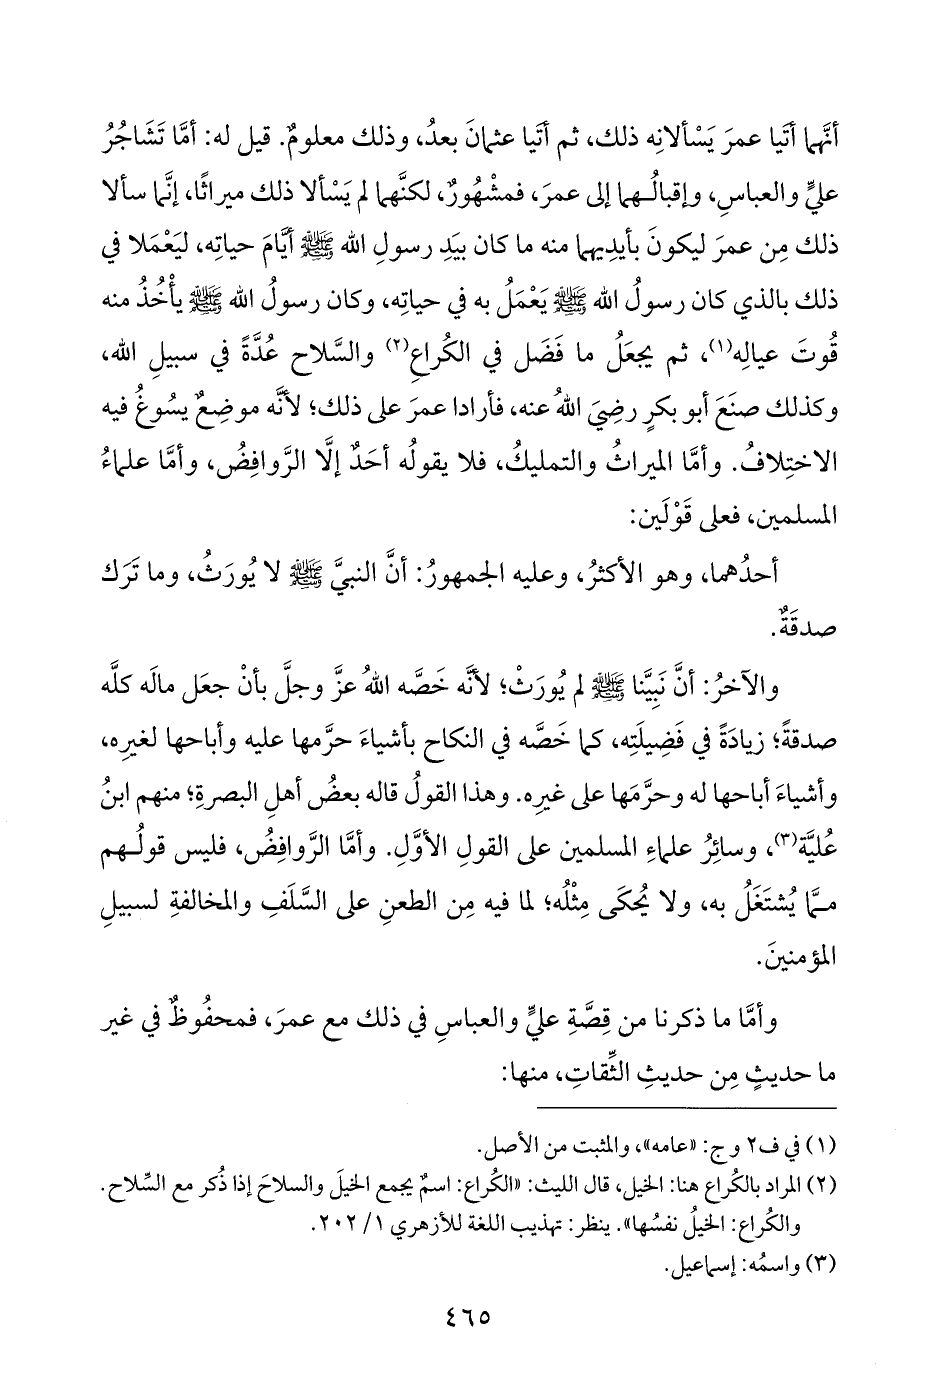 أنَّهما أتَيا عمرَ يَسْألانِه ذلك، ثم أتَيا عثمانَ بعدُ، وذلك معلومٌ. قيل له: أمَّا تَشَاجُرُ
عليٍّ والعباسِ، وإقبالُـهما إلى عمرَ، فمشْهُورٌ، لكنَّهما لم يَسْألا ذلك ميراثًا، إنَّما سألا
ذلك مِن عمرَ ليكونَ بأيدِيهما منه ما كان بيَدِ رسولِ الله ﷺ أيَّامَ حياتِه، ليَعْمَلا في
ذلك بالذي كان رسولُ الله ﷺ يَعْمَلُ به في حياتِه، وكان رسولُ الله ﷺ يأْخُذُ منه
قُوتَ عيالِه(١)، ثم يجعَلُ ما فَضَل في الكُراعِ(٢) والسَّلاح عُدَّةً في سبيلِ الله،
وكذلك صنَعَ أبو بكرٍ رضِيَ اللهُ عنه، فأرادا عمرَ على ذلك؛ لأنَّه موضِعٌ يسُوغُ فيه
الاختِلافُ. وأمَّا الميراثُ والتمليكُ، فلا يقولُه أحَدٌ إلَّا الرَّوافِضُ، وأمَّا علماءُ
المسلمين، فعلى قَوْلَين:
أحدُهما، وهو الأكثرُ، وعليه الجمهورُ: أنَّ النبيَّ ﷺ لا يُورَثُ، وما تَرَك
صدقَةٌ.
والآخرُ: أنَّ نَبِيَّنا ﷺ لم يُورَثْ؛ لأنَّه خَصَّه اللهُ عزَّ وجلَّ بأنْ جعَل مالَه كلَّه
صدقةً؛ زيادَةً في فَضِيلَتِه، كما خَصَّه في النكاح بأشياءَ حرَّمها عليه وأباحها لغيرِه،
وأشياءَ أباحها له وحرَّمَها على غيرِه. وهذا القولُ قاله بعضُ أهلِ البصرةِ؛ منهم ابنُ
عُليَّة(٣)، وسائرُ علماءِ المسلمين على القولِ الأوَّلِ. وأمَّا الرَّوافِضُ، فليس قولُـهم
مـمَّا يُشتَغَلُ به، ولا يُحكَى مِثْلُه؛ لما فيه مِن الطعنِ على السَّلَفِ والمخالفةِ لسبيلِ
المؤمنينَ.
وأمَّا ما ذكرنا من قِصَّةِ عليٍّ والعباسِ في ذلك مع عمرَ، فمحفُوظٌ في غير
ما حديثٍ مِن حديثِ الثِّقاتِ، منها:
(١) في ف٢ و ج: «عامه»، والمثبت من الأصل.
(٢) المراد بالكُراع هنا: الخيل، قال الليث: «الكُراع: اسمٌ يجمع الخيلَ والسلاحَ إذا ذُكر مع السِّلاح.
والكُراع: الخيلُ نفسُها». ينظر: تهذيب اللغة للأزهري ١/ ٢٠٢.
(٣) واسمُه: إسماعيل.
٤٦٥